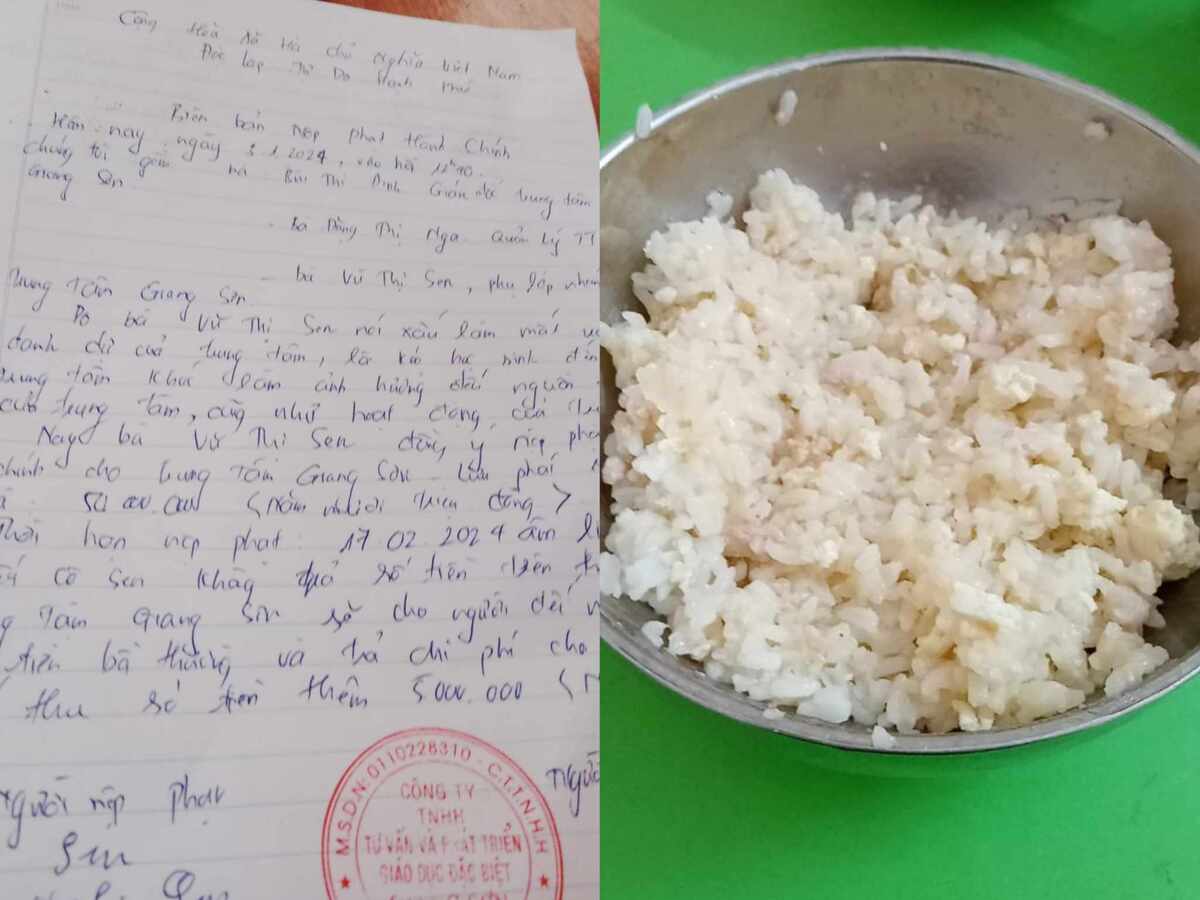 Cộng Hòa Xã Hội chủ Nghĩa Việt Nam
Độc lập Tự Do Hạnh Phúc
Biên bản nộp phạt Hành Chính
Hôm nay ngày 3.1.2024, vào hồi 12h10.
chúng tôi gồm bà Bùi Thị Định Giám đố trung tâm
Giang Sơn.
- Bà Đồng Thị Nga Quản Lý TT
- bà Vũ Thị Sen, phụ lớp
trung Tâm Giang Sơn.
Do bà Vũ Thị Sen nói xấu làm mất
danh dự của trung tâm, học sinh
trung tâm khác làm ảnh hưởng đến người
của trung tâm, cũng như hoạt động của
Nay bà Vũ Thị Sen đồng ý nộp phạ
chính cho trung Tâm Giang Sơn
50.000.000 (Năm mươi triệu đồng)
hời hạn nộp phạt: 17.02.2024 âm l
cô Sen không số tiền trên
g Tâm Giang Sơn sẽ cho người đến
tiền bồi thường và trả chi phí cho
thu số tiền thêm 5000.000 (
người nộp phạt
Người
Sen
M.S.D.N: 0110228310 - C.T.T.N.H.H
CÔNG TY
TNHH
TƯ VẤN VÀ PHÁT TRIỂN
GIÁO DỤC ĐẶC BIỆT